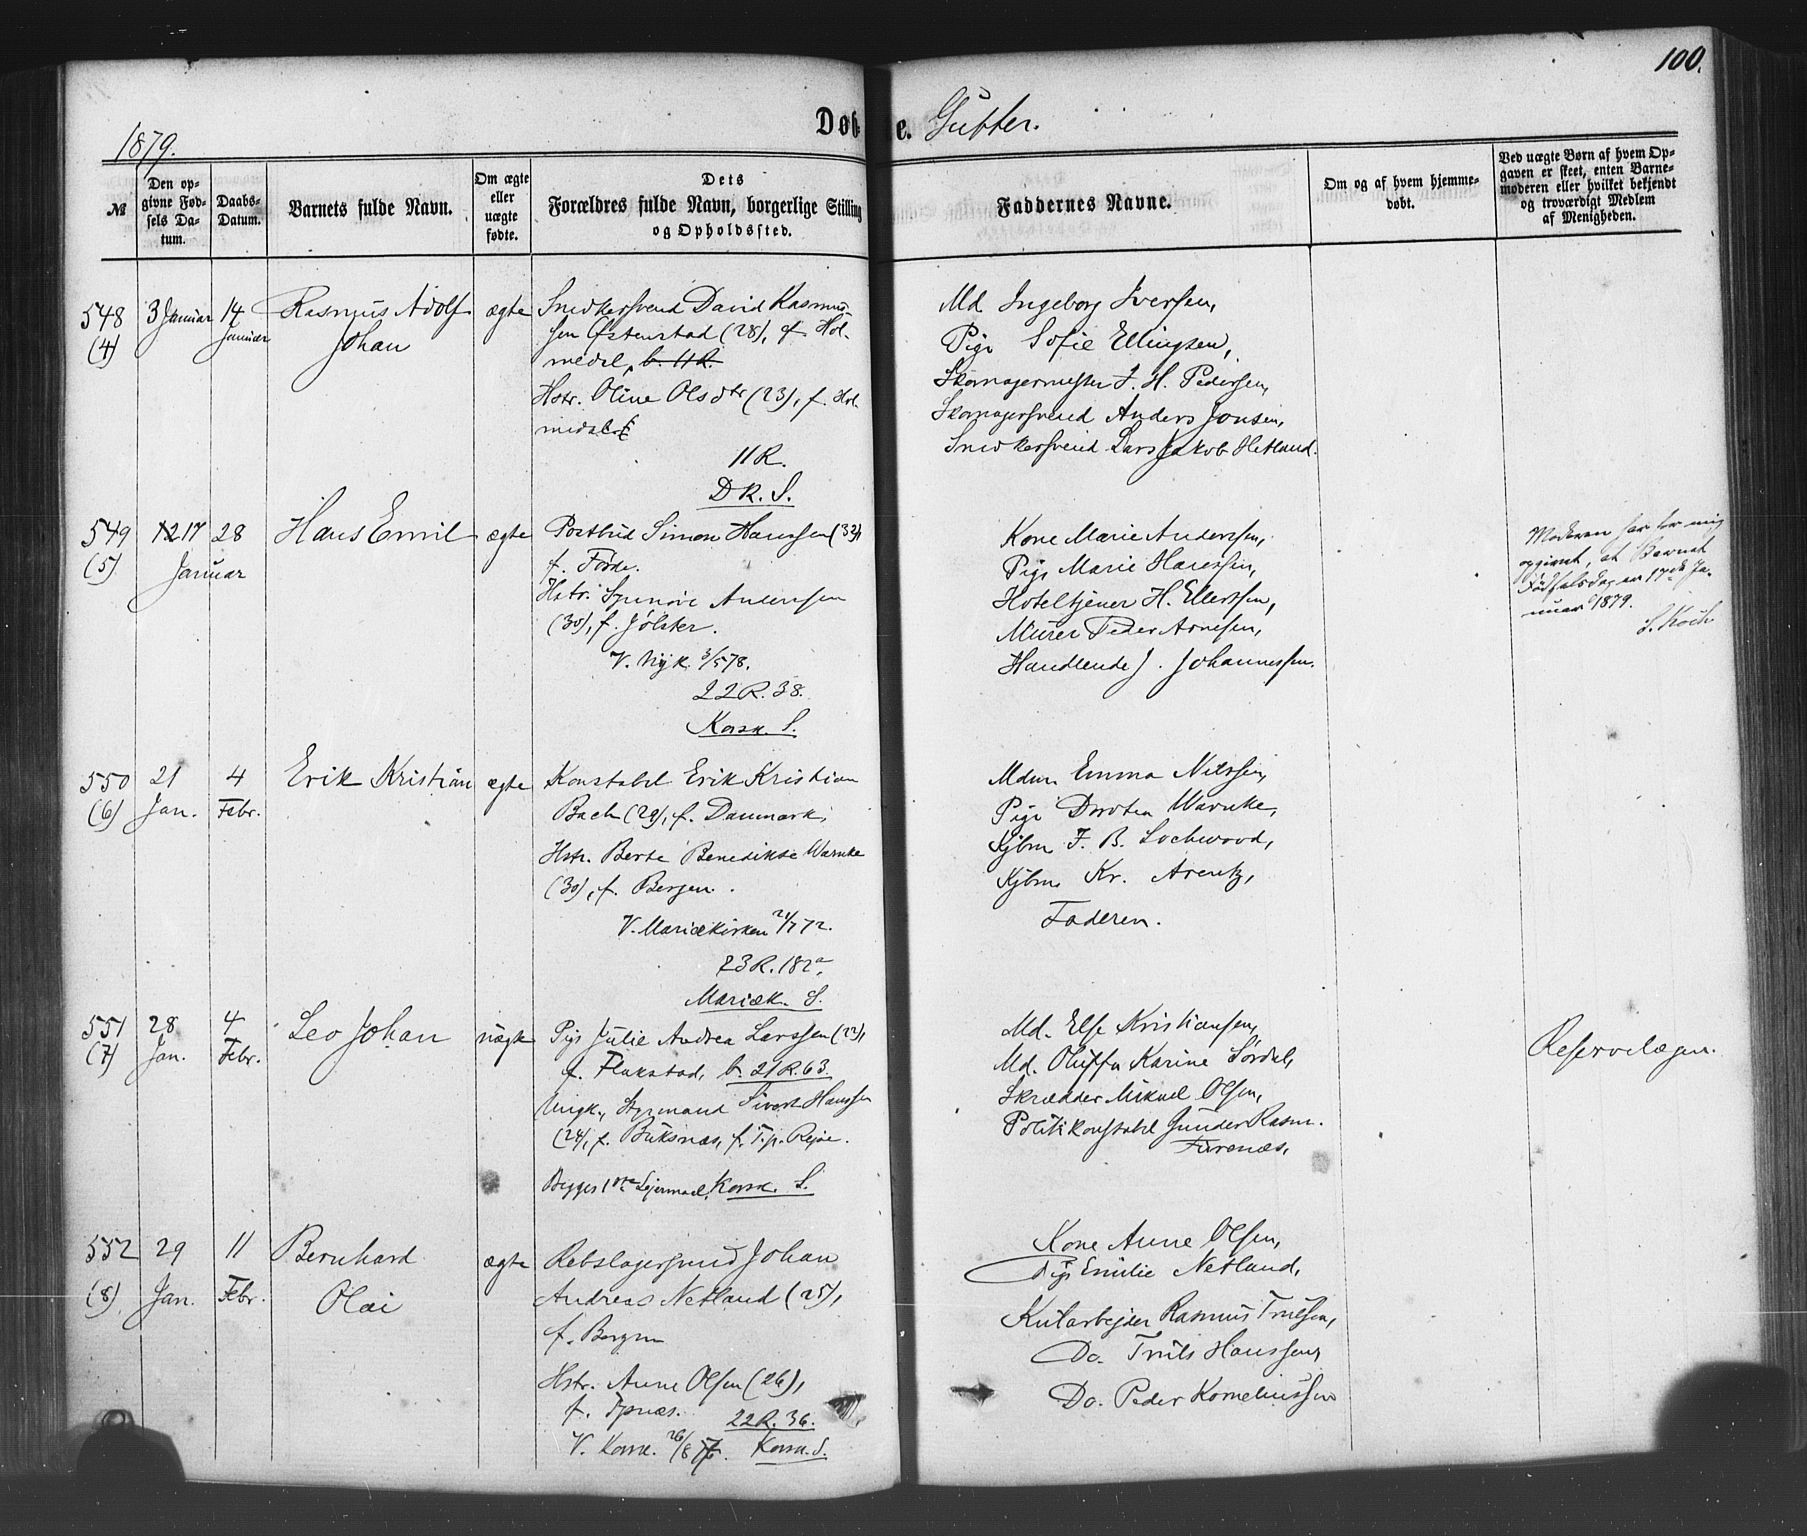 100.
1879.
Døb e. Gutter.
№
Den op-
givne Fød-
sels Da-
tum.
Daabs-
Datum.
Barnets fulde Navn.
Om ægte
eller
uægte
fødte.
Dets
Forældres fulde Navn, borgerlige Stilling
og Opholdssted.
Faddernes Navne.
Om og af hvem hjemme-
døbt.
Ved uægte Børn af hvem Op-
gaven er skeet, enten Barne-
moderen eller hvilket bekjendt
og troværdigt Medlem
af Menigheden.
548
(4)
3 Januar
14
Januar
Rasmus Adolf
Johan
ægte
Snidkersvend David Rasmus-
sen Østenstad (28), f. Hol-
medal, b. 11 R.
Hstr. Oline Olsdtr (23), f. Hol-
medal
11 R.
D K. S.
Md Ingeborg Iversen,
Pige Sofie Ellingsen,
Skomagermester J. H. Pedersen,
Skomagersvend Anders Jonsen,
Snidkersvend Lars Jakob Hetland.
549
(5)
12 17
Januar
28
Hans Emil
ægte
Postbud Simon Hanssen (32),
f. Førde.
Hstr. Synnøve Andersen
(30), f. Jølster.
V. Nyk. 3/5 78.
22 R. 38.
Korsk. S.
Kone Marie Anderssen,
Pige Marie Hanssen,
Hoteltjener H. Ellerssen,
Murer Peder Arnesen,
Handlende J. Johannessen.
Moderen har for mig
opgivet, at Barnets
Fødselsdag er 17de Ja-
nuar 1879.
S. Koch
550
(6)
21
Jan.
4
Febr.
Erik Kristian
ægte
Konstabel Erik Kristian
Bach (29), f. Danmark,
Hstr. Berte Benedikte Warnke
(30), f. Bergen.
V. Mariækirken 21/7 72.
23 R. 182a,
Mariæk. S.
Mdm Emma Nilssen,
Pige Dorotea Warnke,
Kjbm F. B. Lochwood,
Kjbm. Kr. Arentz,
Faderen.
551
(7)
28
Jan.
4
Febr.
Leo Johan
uægte
Pige Julie Andrea Larssen (22),
f. Flakstad, b. 21 R. 63.
Ungk., Styrmand Sivert Hanssen
(24), f. Buksnæs, f. T. p. Rejse.
Begges 1ste Lejermaal, Korsk. S.
Md. Else Kristiansen,
Md. Oluffa Karine Sørdal,
Skrædder Mikael Olsen,
Politikonstabel Gunder Rasm.
Furenæs,
Reservelægen.
552
(8)
29
Jan.
11
Febr.
Bernhard
Olai
ægte
Rebslagersvend Johan
Andreas Netland (25),
f. Bergen
Hstr. Anne Olsen (26),
f. Topnæs.
22 R. 36.
V. Korsk. 26/8 77. Korsk. S.
Kone Anne Olsen,
Pige Emilie Netland,
Kularbejder Rasmus Trulsen,
Do. Truls Hanssen,
Do. Peder Korneliussen